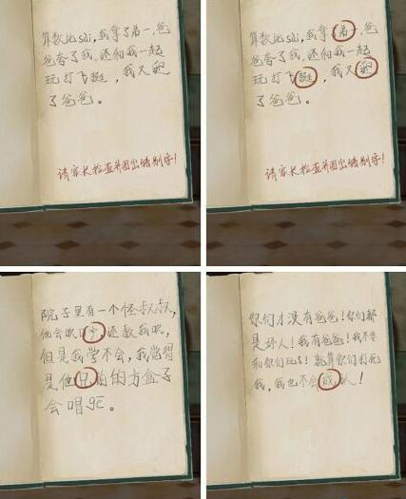 算数比sài，我拿了弟一，爸
爸夸了我，还和我一起
玩打飞挺，我
了爸爸。
请家长检查并圈出错别字！
算数比sài，我拿了弟一，爸
爸夸了我，还和我一起
玩打飞挺，我
了爸爸。
请家长检查并圈出错别字！
院子里有一个怪叔叔，
他会吹口少，还教我吹，
但是我学不会，我觉得
是他兄前的方盒子
会唱gē。
你们才没有爸爸！你们都
是坏人！我有爸爸！我不要
和你们玩了！就算你们打死
我，我也不会成人！